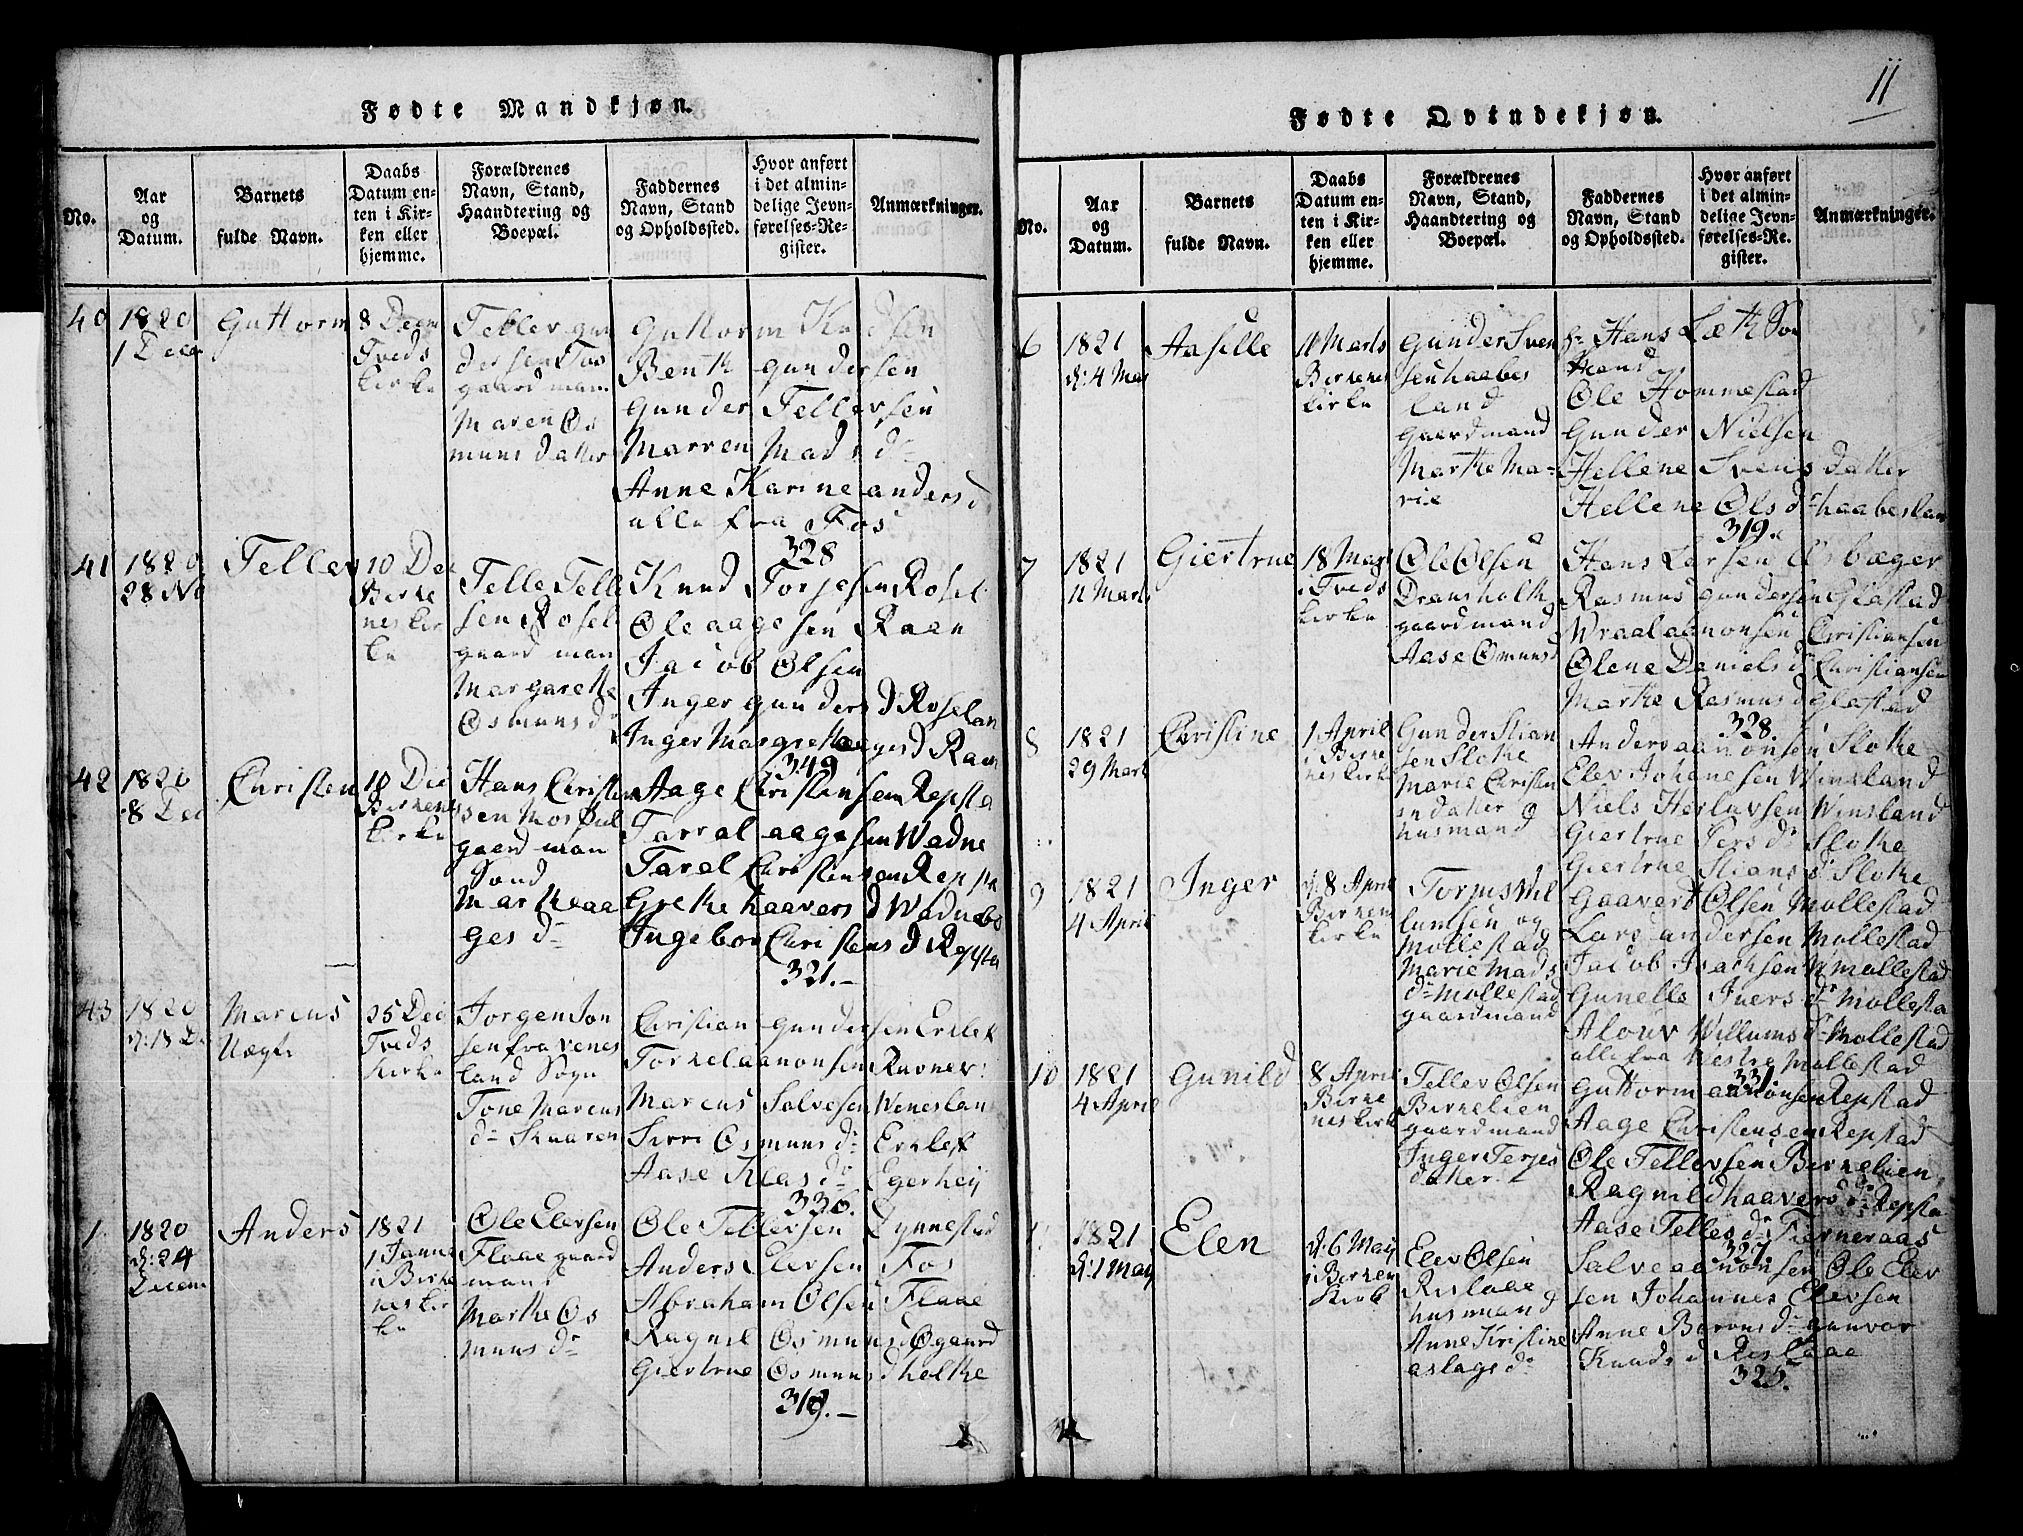 11
Fødte Mandkjøn.
No.
Aar
og
Datum.
Barnets
fulde Navn.
Daabs
Datum en-
ten i Kir-
ken eller
hjemme.
Forældrenes
Navn, Stand,
Haandtering og
Boepæl.
Faddernes
Navn, Stand
og Opholdssted.
Hvor anført
i det almin-
delige Jevn-
førelses-Re-
gister.
Anmærkninger.
40
1820
1 Decm
Guttorm
8 Decm
Tveds
kirke
Tellev gun
dersen Fos
gaard man
Maren Os
muns datter
Guttorm Knudsen
Bentk gundersen
Gunder Tellevsen
Marren Mads d
Anne Karine anders d
alle fra Fos
328
41
1820
28 No
Tellev
10 Dec
Birke
nes kir
ke
Telle Telle
sen Rosel
gaard man
Margarethe
Osmuns d
Knud Torjesen Rosel
Ole aagesen Raan
Jacob Olsen
Inger gunders d Roselan
Inger Margrethe aages d Raan
349
42
1820
8 Dec
Christen
10 Dec
Birkenes
kirke
Hans Christen
sen
gaard man
Marthe aa
ges d
Aage Christensen Repsta
Tarral aagesen Wadne
Tarel Christensen Repsta
Grethe haavers d Wadne
Ingebor Christens d Repsta
321.-
43
1820
d: 18 De
Marcus
25 Dec
Tveds
Kirke
Jorgen Jon
sen fra venes
land Sogn
Tone Marcus
d
Christian gundersen Erclef
Torkel aanonsen
Marcus Salvesen Weneslan
Sirri Osmuns d Erclef
Aase Klas d Egerhey
336.
1
1820
d: 24
Decem
Anders
1821
1 Janua
i Birke
nes kir
ke
Ole Elevsen
Flaae gaard
mand
Marthe Os
muns d
Ole Tellevsen Tynnestad
Anders Elevsen Fos
Abraham Olsen Flaae
Ragnil Osmuns d Ogaard
Giertrue Osmuns d holthe
319.-
Fødte Qvindekjøn.
No.
Aar
og
Datum.
Barnets
fulde Navn.
Daabs
Datum en-
ten i Kir-
ken eller
hjemme.
Forældrenes
Navn, Stand,
Haandtering og
Boepæl.
Faddernes
Navn, Stand
og Opholdssted.
Hvor anført
i det almin-
delige Jevn-
førelses-Re-
gister.
Anmærkninger.
6
1821
d: 4 Mar
Aaselle
11 Marts
Birkenes
kirke
Gunder Sven
sen haabes
land
gaardmand
Marthe Ma-
rie
Hans
Ole Hommestad
Gunder Nielsen
Hellene Svens datter
Hellene Ols d haabeslan
319.
7
1821
11 Marts
Giertrue
18 Mars
i Tveds
kirke
Ole Olsen
Dransholth
gaardmand
Aase Omuns d
Hans Larsen
Rasmus gundersen Glastad
Wraal aanonsen Christiansen
Olene Daniels d Christiansen
Marthe Rasmus d Glastad
328.
8
1821
29 Mart
Christine
1 April
i Birke
nes kirke
Gunder Stian
sen Slotke
Marie Christen
sn datter
husmand
Anders aanonsen Slotke
Elev Johanesen Winsland
Niels Herluvsen Winsland
Giertrue Pers d Slotke
Giertrue Stians d Slotke
9
1821
4 April
Inger
d: 8 April
Birken
kirke
Torjus Wil
lumsen og
Mollestad
Marie Mads
d Mollestad
gaardmand
Gaavert Olsen Mollestad
Lars andersen Mollestad
Jacob Isachsen Mollestad
Gunelle Ivers d Mollesta
Alouv Willums d Mollestad
alle fra Mollestad
331.
10
1821
4 April
Gunild
8 April
Birke
nes kirk
Tellev Olsen
Birkelien
gaardmand
Inger Terjes
datter
Guttorm aanonsen Repstad
Aage Christensen Repstad
Ole Tellevsen Birkelien
Ragnild haavers d Repsta
Aase Telles d Tierneraas
327.
1
1821
d: 1 May
Elen
d: 6 May
i Birken
Kirk
Elev Olsen
Rislaae
husmand
Anne Kristine
aslags d
Salve aanonsen Ole Elev
sen Johannes Elevsen
Anne d gunvor
Knuds d Rislaae
325.